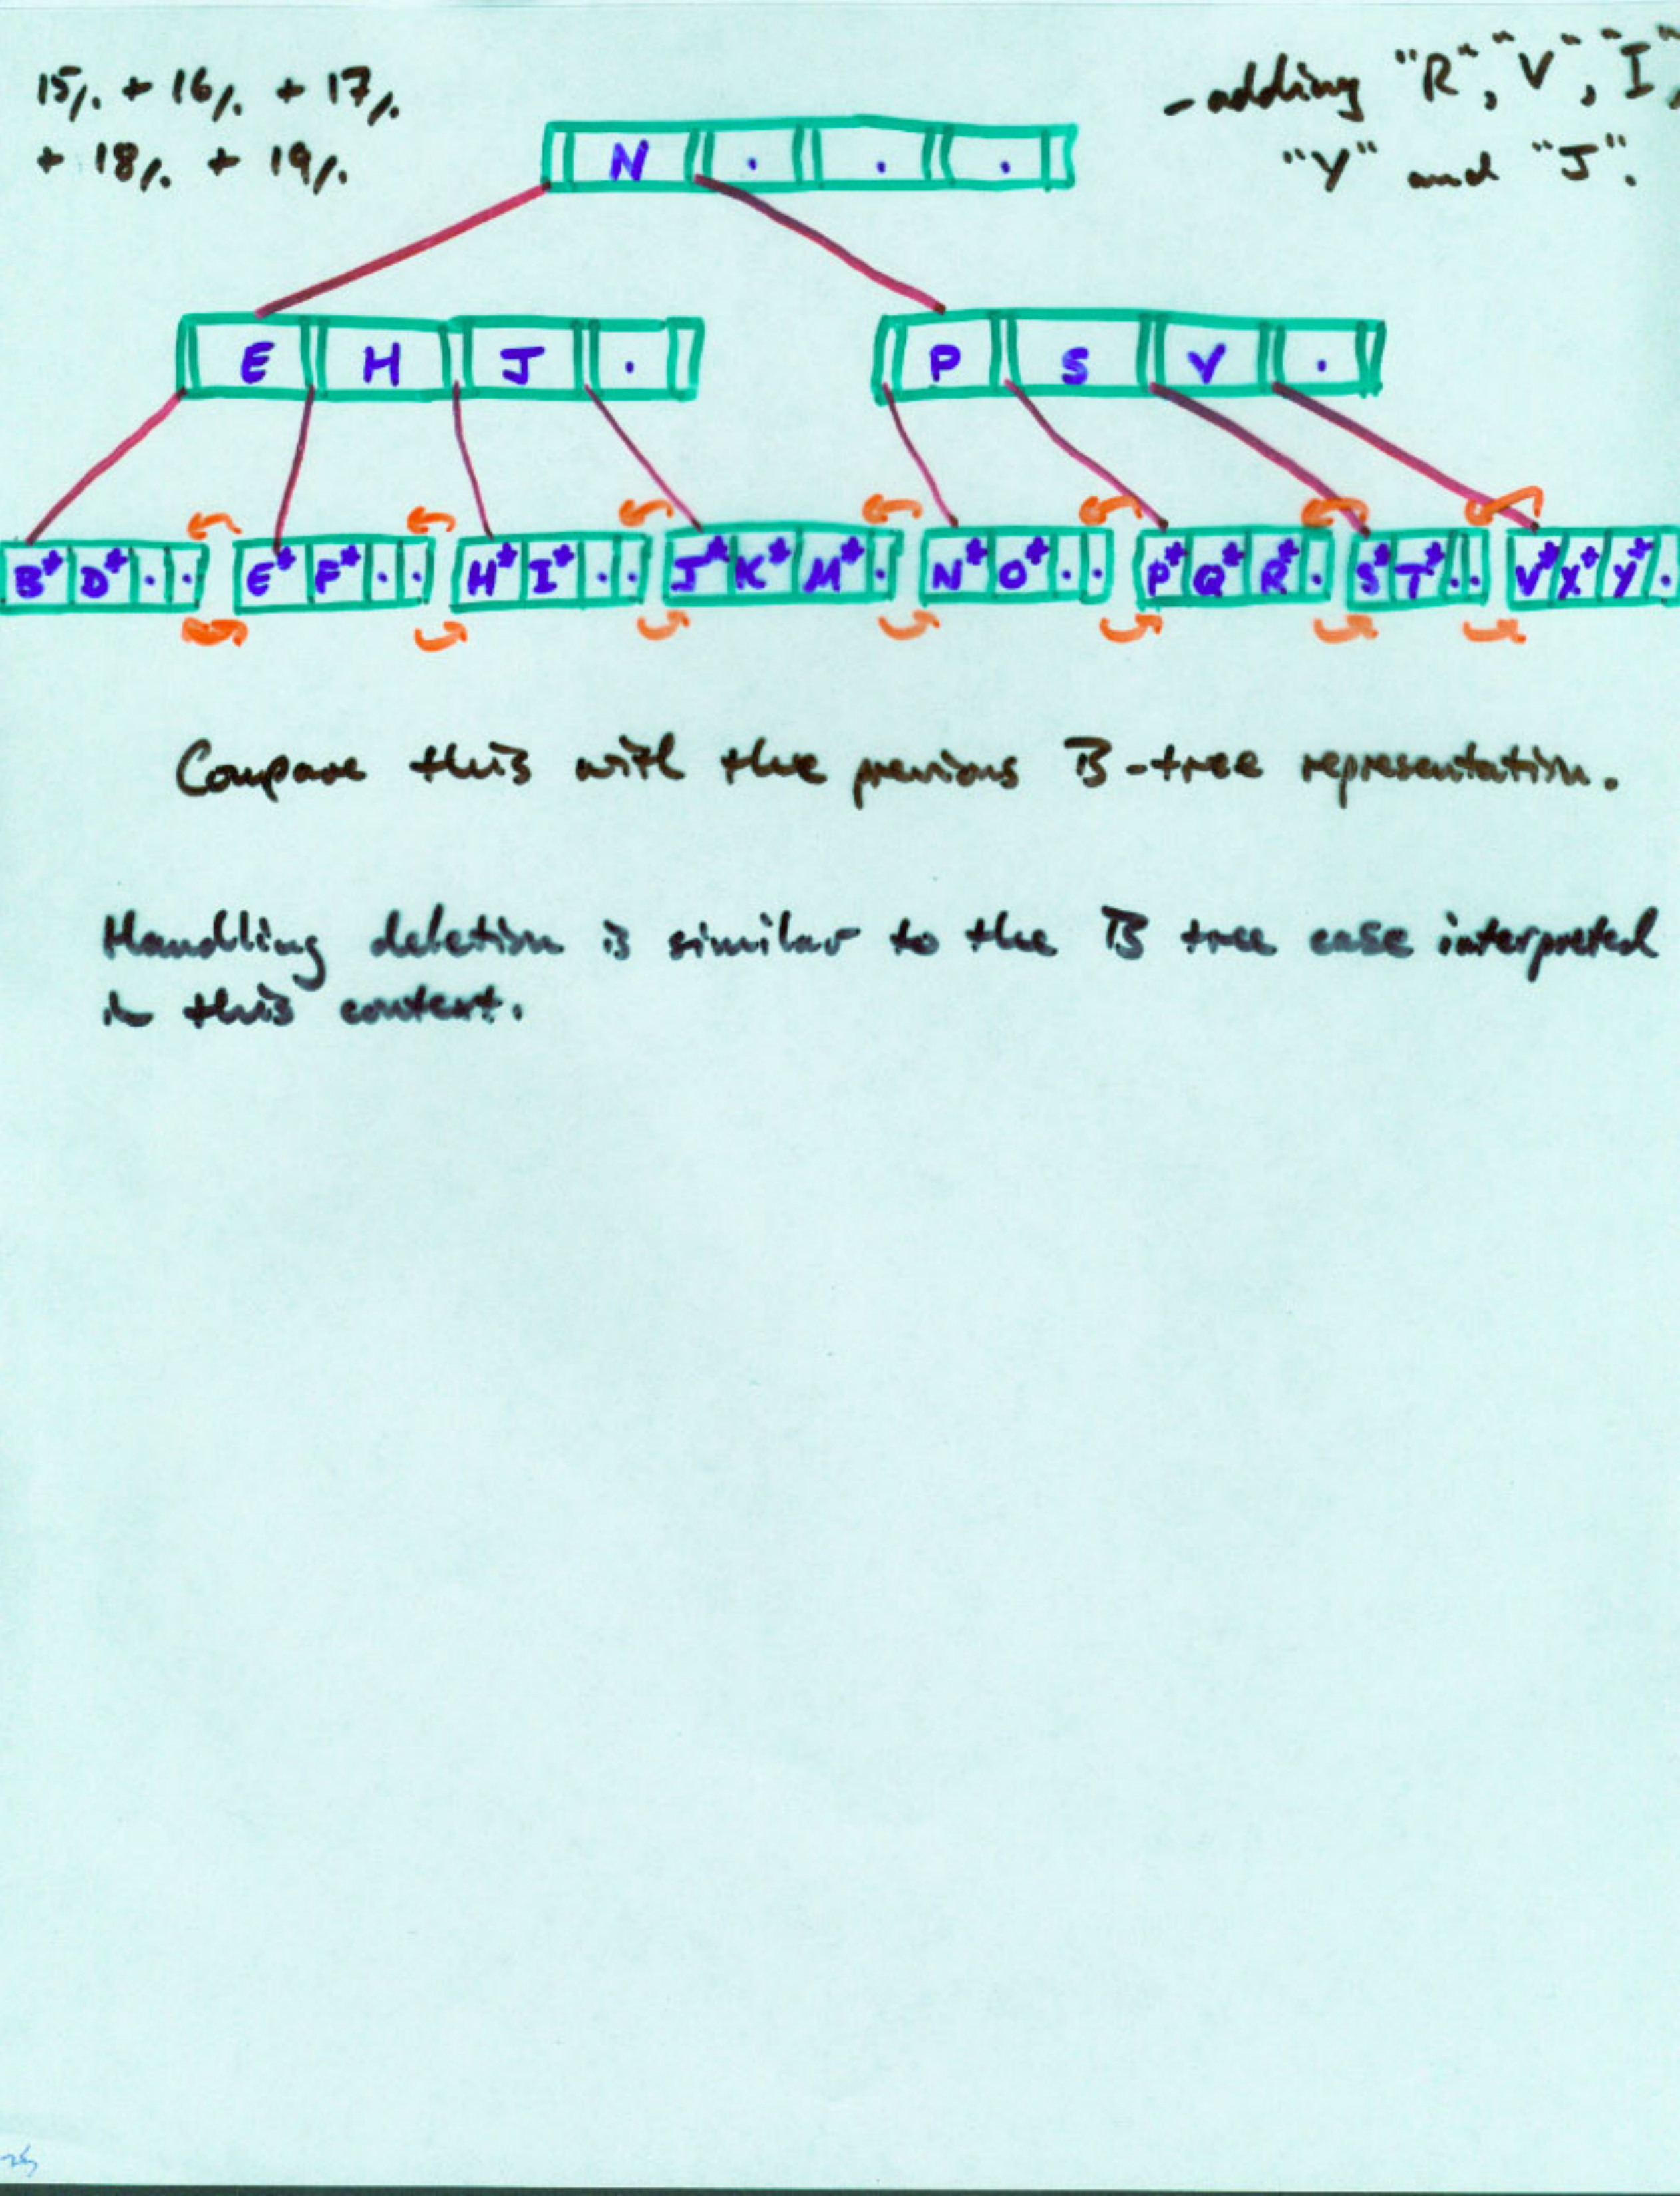 15/. + 16/. + 17/.
+ 18/. + 19/.
- adding "R", "V", "I",
"Y" and "J".
N . . .
E H J .
P S V .
B* D* . .
E* F* . .
H* I* . .
J* K* M* .
N* O* . .
P* Q* R* .
S* T* . .
V* X* Y* .
Compare this with the previous B-tree representation.
Handling deletion is similar to the B tree case interpreted
in this context.